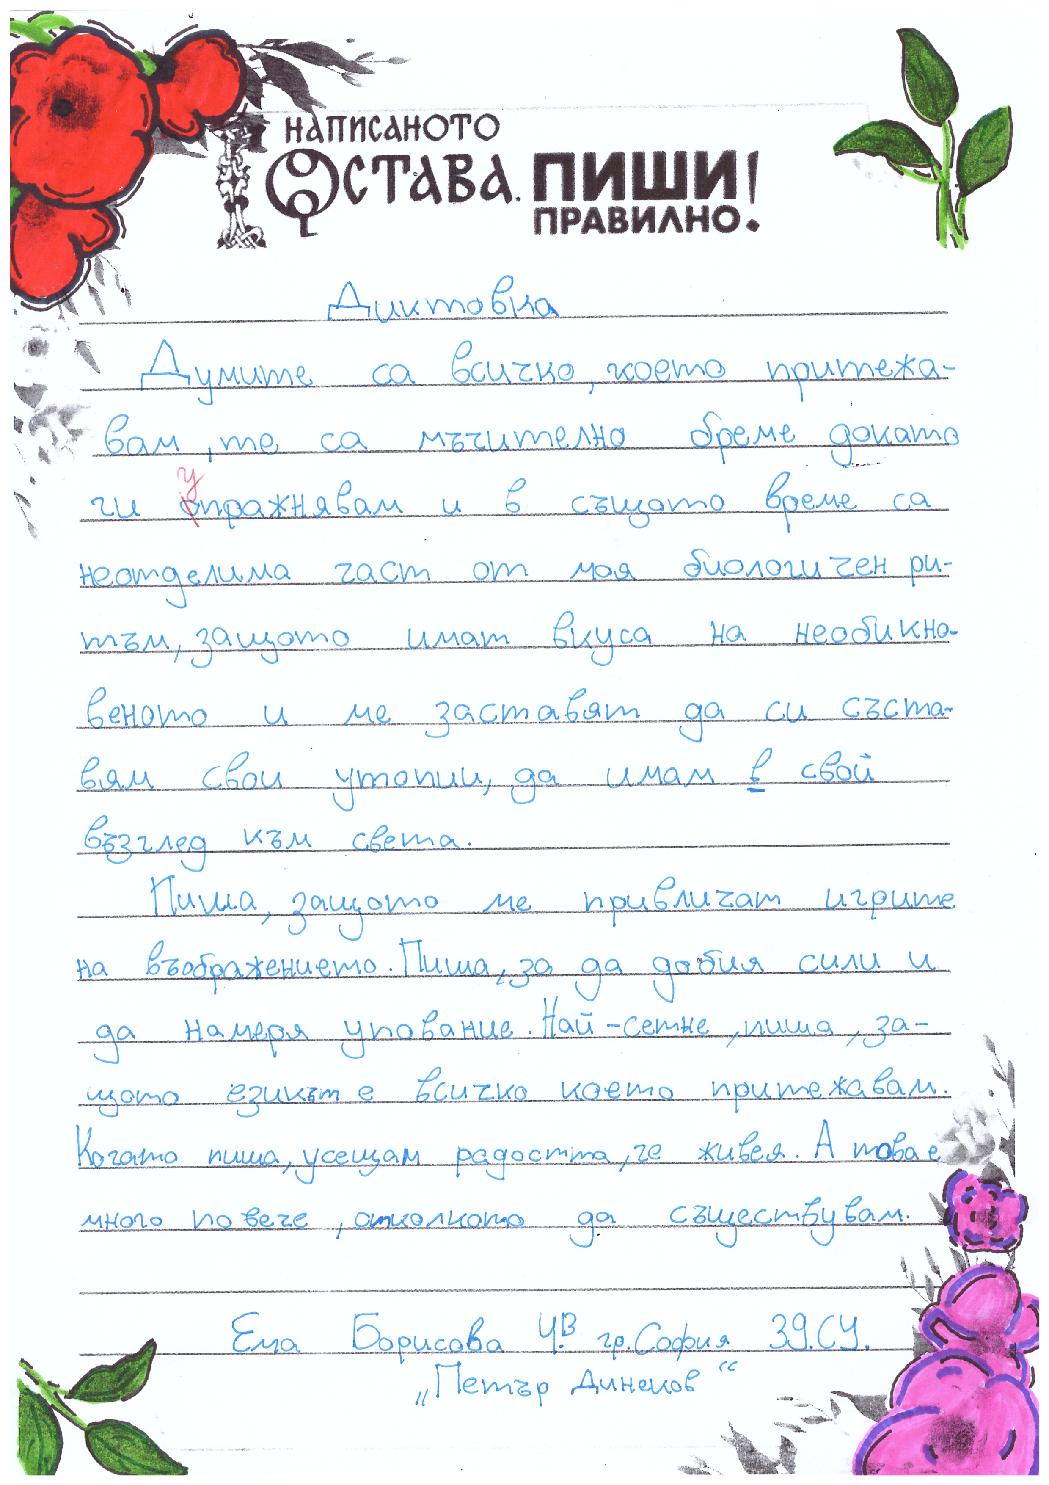 НАПИСАНОТО
ОСТАВА. ПИШИ
ПРАВИЛНО!
Диктовка
Думите са всичко, което притежа-
вам, те са мъчително бреме докато
ги упражнявам и в същото време са
неотделима част от моя биологичен ри-
тъм, защото имат вкуса на необикно-
веното и ме заставят да си съста-
вям свои утопии, да имам в свой
възглед към света.
Пиша, защото ме привличат игрите
на въображението. Пиша, за да добия сили и
да намеря упование. Най-сетне, пиша, за-
щото езикът е всичко което притежавам.
Когато пиша, усещам радостта, че живея. А това е
много повече, отколкото да съществувам.
Ема Борисова 4.В гр. София 39.СУ.
„Петър Динеков“